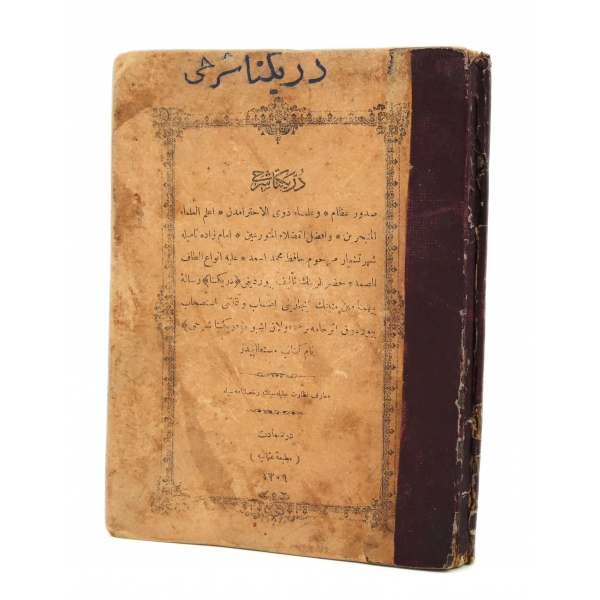 دريكتا شرحی
دريكتا شرحی
صدور عظام * و علماء ذوی الاحترامدن * اعلم العلماء
المتبحرين * و افضل الفضلاء المتورعين * امام زاده ناميله
شهرتشعار مرحوم حافظ محمد اسعد * عليه انواع الطاف
الصمد * حضرتلرينك تأليف بيوردقلری ﴿دريكتا﴾ رسالهٔ
اولان اشبو ﴿دريكتا شرحی﴾
نام كتاب مستطابيدر
معارف نظارت جليله سنك رخصتنامه سيله
درسعادت
( مطبعهٔ عثمانيه )
١٣٠٩